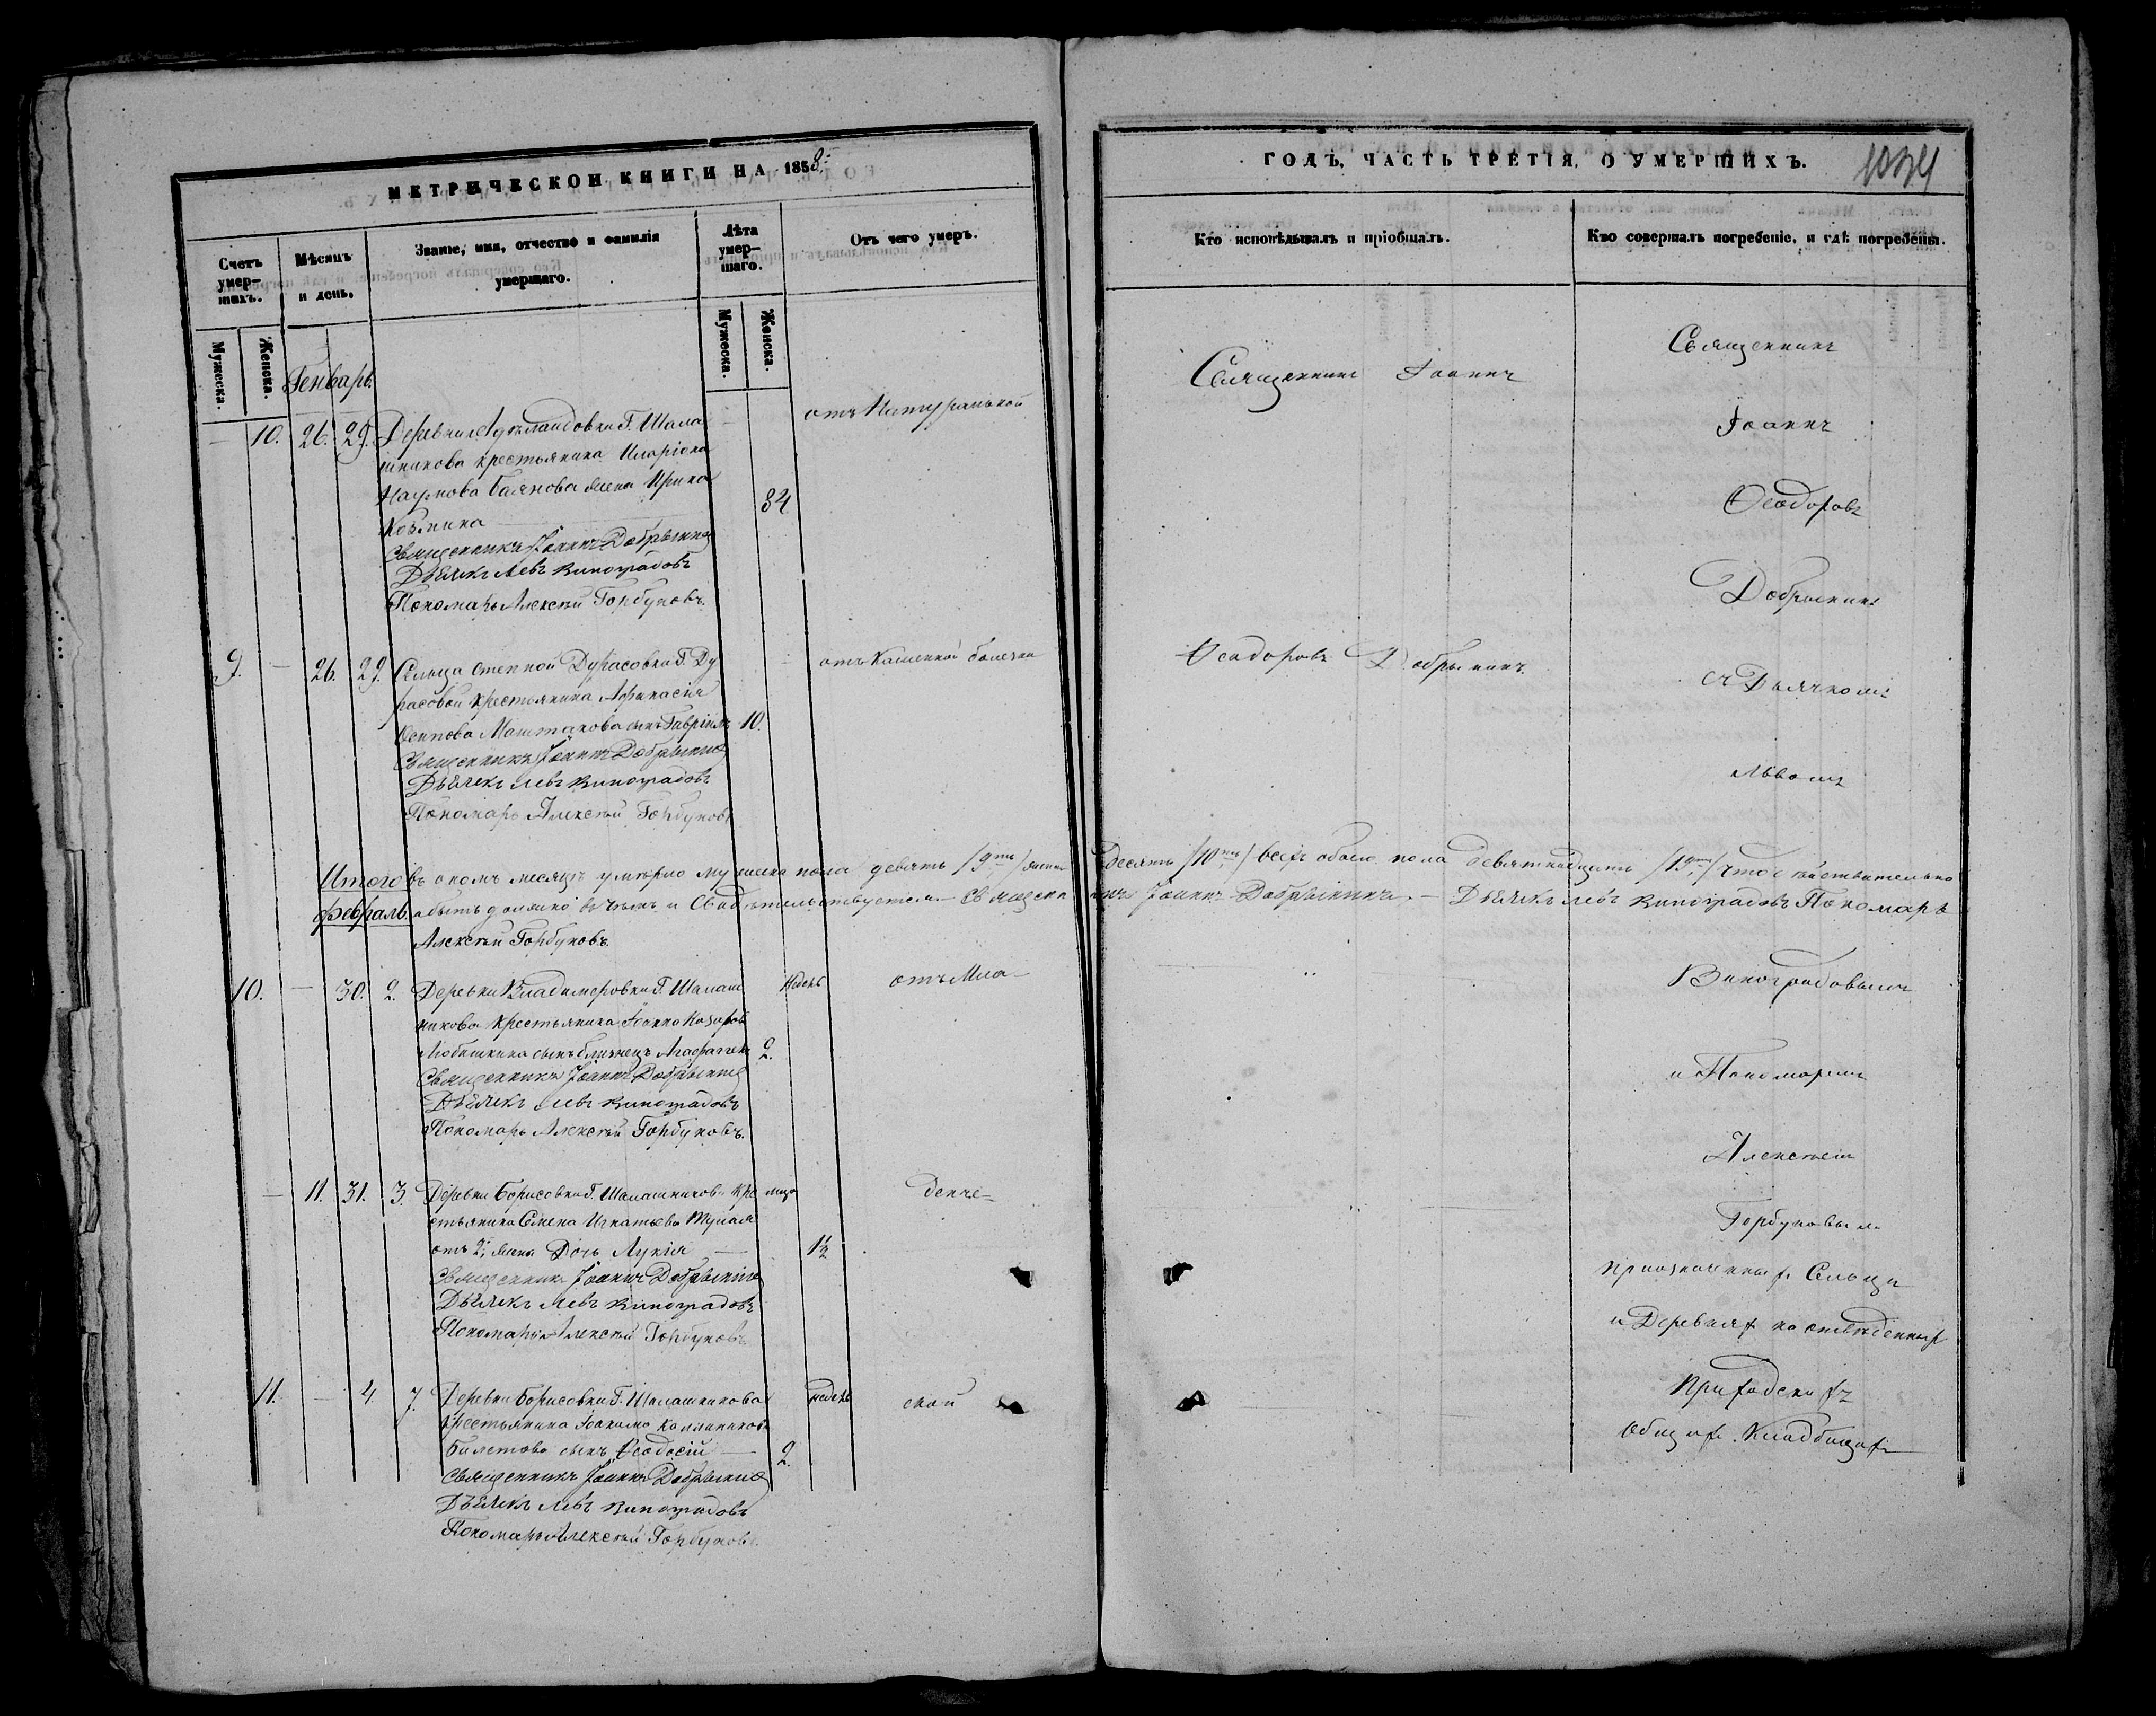 МЕТРИЧЕСКОЙ КНИГИ НА 1858:
Счетъ умер-шихъ.
Мѣсяцъ и день.
Званіе, имя, отчество и фамилія умершаго.
Лѣта умер-шаго.
Отъ чего умеръ.
Мужеска. Женска.
Мужеска. Женска.
Генварь.
— 10. 26. 29. Деревни Г. Шала
шникова крестьянина Иларіона
Наумова Баянова жена Ирина
Козмина — 84
Священникъ Іоаннъ Добрынинъ
Дьячекъ Левъ Виноградовъ
Пономарь Алексѣй Горбуновъ.
отъ Натуральной
9. — 26. 29. Сельца Степной Дурасовки Г. Ду
расовой крестьянина Афанасія
Осипова Маштакова сынъ Гавріилъ 10.
Священникъ Іоаннъ Добрынинъ
Дьячекъ Левъ Виноградовъ
Пономарь Алексѣй Горбуновъ
отъ Кашенной болезни
Итого въ ономъ месяцѣ умерло мужеска пола девять /9ть/ женск
февраль.
Алексѣй Горбуновъ.
10. — 30. 2. Деревни Владимеровки Г. Шалаш
никова крестьянина Іоанна Назарова
сынъ близнецъ 2.
недель
Священникъ Іоаннъ Добрынинъ
Дьячекъ Левъ Виноградовъ
Пономарь Алексѣй Горбуновъ.
отъ Мла-
— 11. 31. 3. Деревни Борисовки Г. Шалашникова кре
стьянина Семена Игнатьева
отъ 2й жены Дочь Лукія — 1½
Священникъ Іоаннъ Добрынинъ
Дьячекъ Левъ Виноградовъ
Пономарь Алексѣй Горбуновъ
денче-
11. — 4. 7. Деревни Борисовки Г. Шалашникова
крестьянина Іоакима Каллиникова
сынъ Ѳеодосій — 2.
недель
Священникъ Іоаннъ Добрынинъ
Дьячекъ Левъ Виноградовъ
Пономарь Алексѣй Горбуновъ.
ской
ГОДЪ, ЧАСТЬ ТРЕТІЯ, О УМЕРШИХЪ.
Кто исповѣдывалъ и пріобщалъ.
Кто совершалъ погребеніе, и гдѣ погребены.
Священникъ Іоаннъ
Ѳеодоровъ Добрынинъ.
Священникъ
Іоаннъ
Ѳеодоровъ
Добрынинъ
съ Дьячкомъ
Львомъ
десять /10ть/ всѣхъ обоего пола девятнадцать /19ть/ что действительно
Іоаннъ Добрынинъ. — Дьячекъ Левъ Виноградовъ Пономарь
Виноградовымъ
и Пономаремъ
Алексѣемъ
Горбуновымъ
Сельца
и Деревняхъ на отведенныхъ
Приходскихъ
общихъ Кладбищахъ